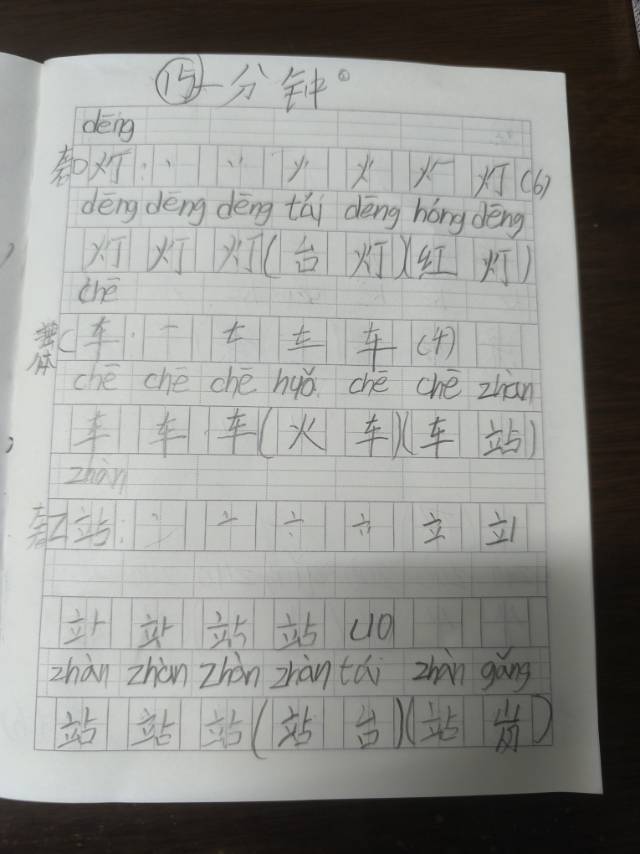 ⑮一分钟
dēng
灯：丶 丷 火 火 灯 灯 (6)
dēng dēng dēng tái dēng hóng dēng
灯 灯 灯(台 灯)(红 灯)
chē
整体 车：一 𠂇 车 车 (4)
chē chē chē huǒ chē chē zhàn
车 车 车(火 车)(车 站)
zhàn
左右 站：丶 亠 立 立 立 站
站 站 站 站 (10)
zhàn zhàn zhàn zhàn tái zhàn gǎng
站 站 站(站 台)(站 岗)